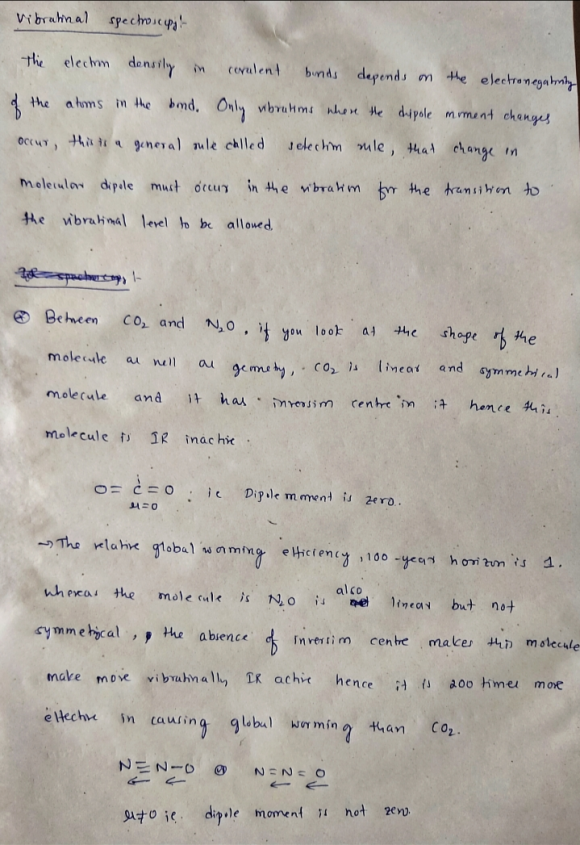 Vibrational spectroscopy:-
The electron density in covalent bonds depends on the electronegativity
of the atoms in the bond. Only vibrations where the dipole moment changes
occur, this is a general rule called selection rule, that change in
molecular dipole must occur in the vibration for the transition to
the vibrational level to be allowed.
:-
Between CO₂ and N₂O, if you look at the shape of the
molecule as well as geometry, CO₂ is linear and symmetrical
molecule and it has inversion centre in it hence this
molecule is IR inactive.
O=C=O : ie Dipole moment is zero.
μ=0
→ The relative global worming efficiency, 100-year horizon is 1.
whereas the molecule is N₂O is also linear but not
symmetrical, the absence of inversion centre makes this molecule
make more vibrationally IR active hence it is 200 times more
effective in causing global worming than CO₂.
N≡N-O N=N=O
μ≠0 ie. dipole moment is not zero.